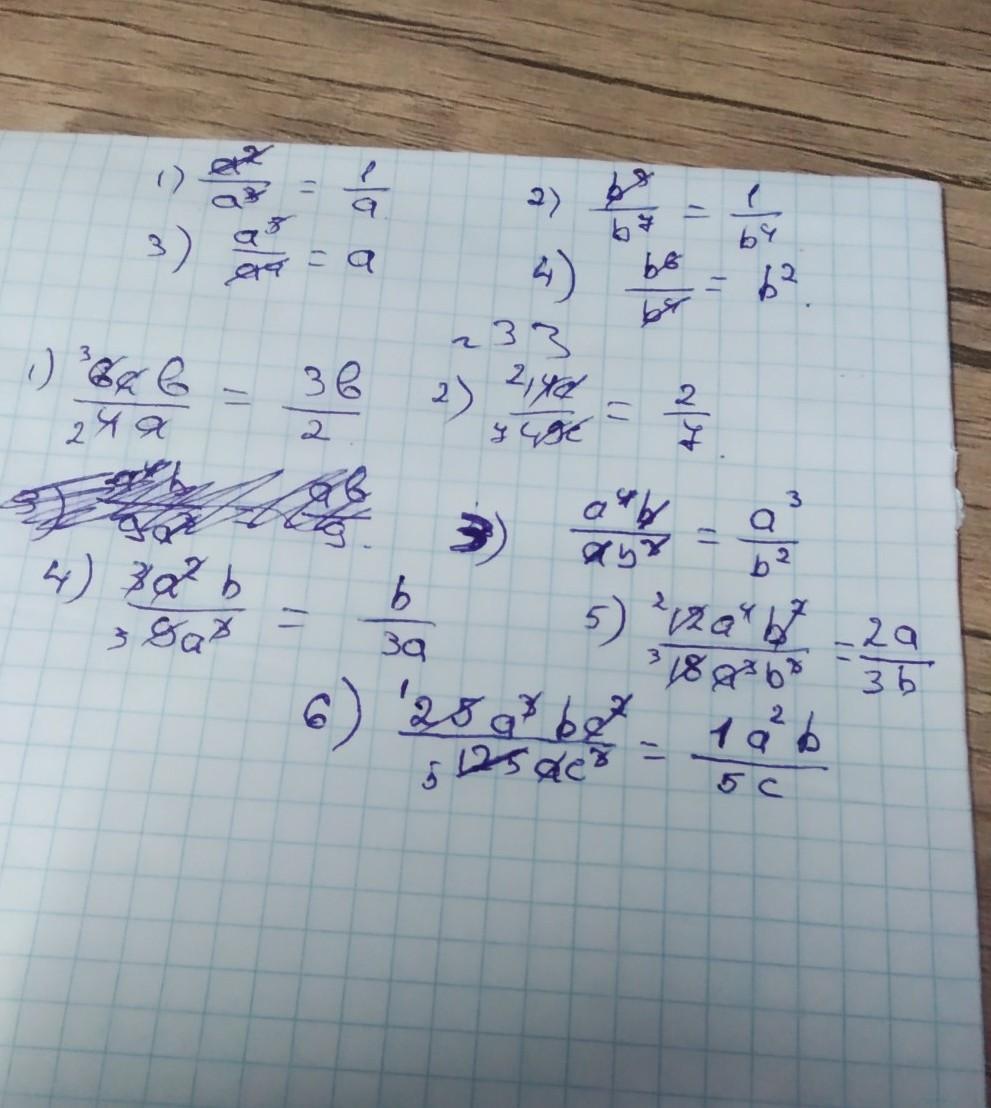 1) a²/a³ = 1/a 2) b³/b⁷ = 1/b⁴
3) a⁵/a⁴ = a 4) b⁶/b⁴ = b².
~ 33
1) ³6ab/₂4a = 3b/2 2) ²14c/₇49c = 2/7.
3) a⁴b/ab³ = a³/b²
4) 3a²b/₃9a³ = b/3a 5) ²12a⁴b²/₃18a³b³ = 2a/3b
6) ¹25a³bc²/₅125ac³ = 1a²b/5c